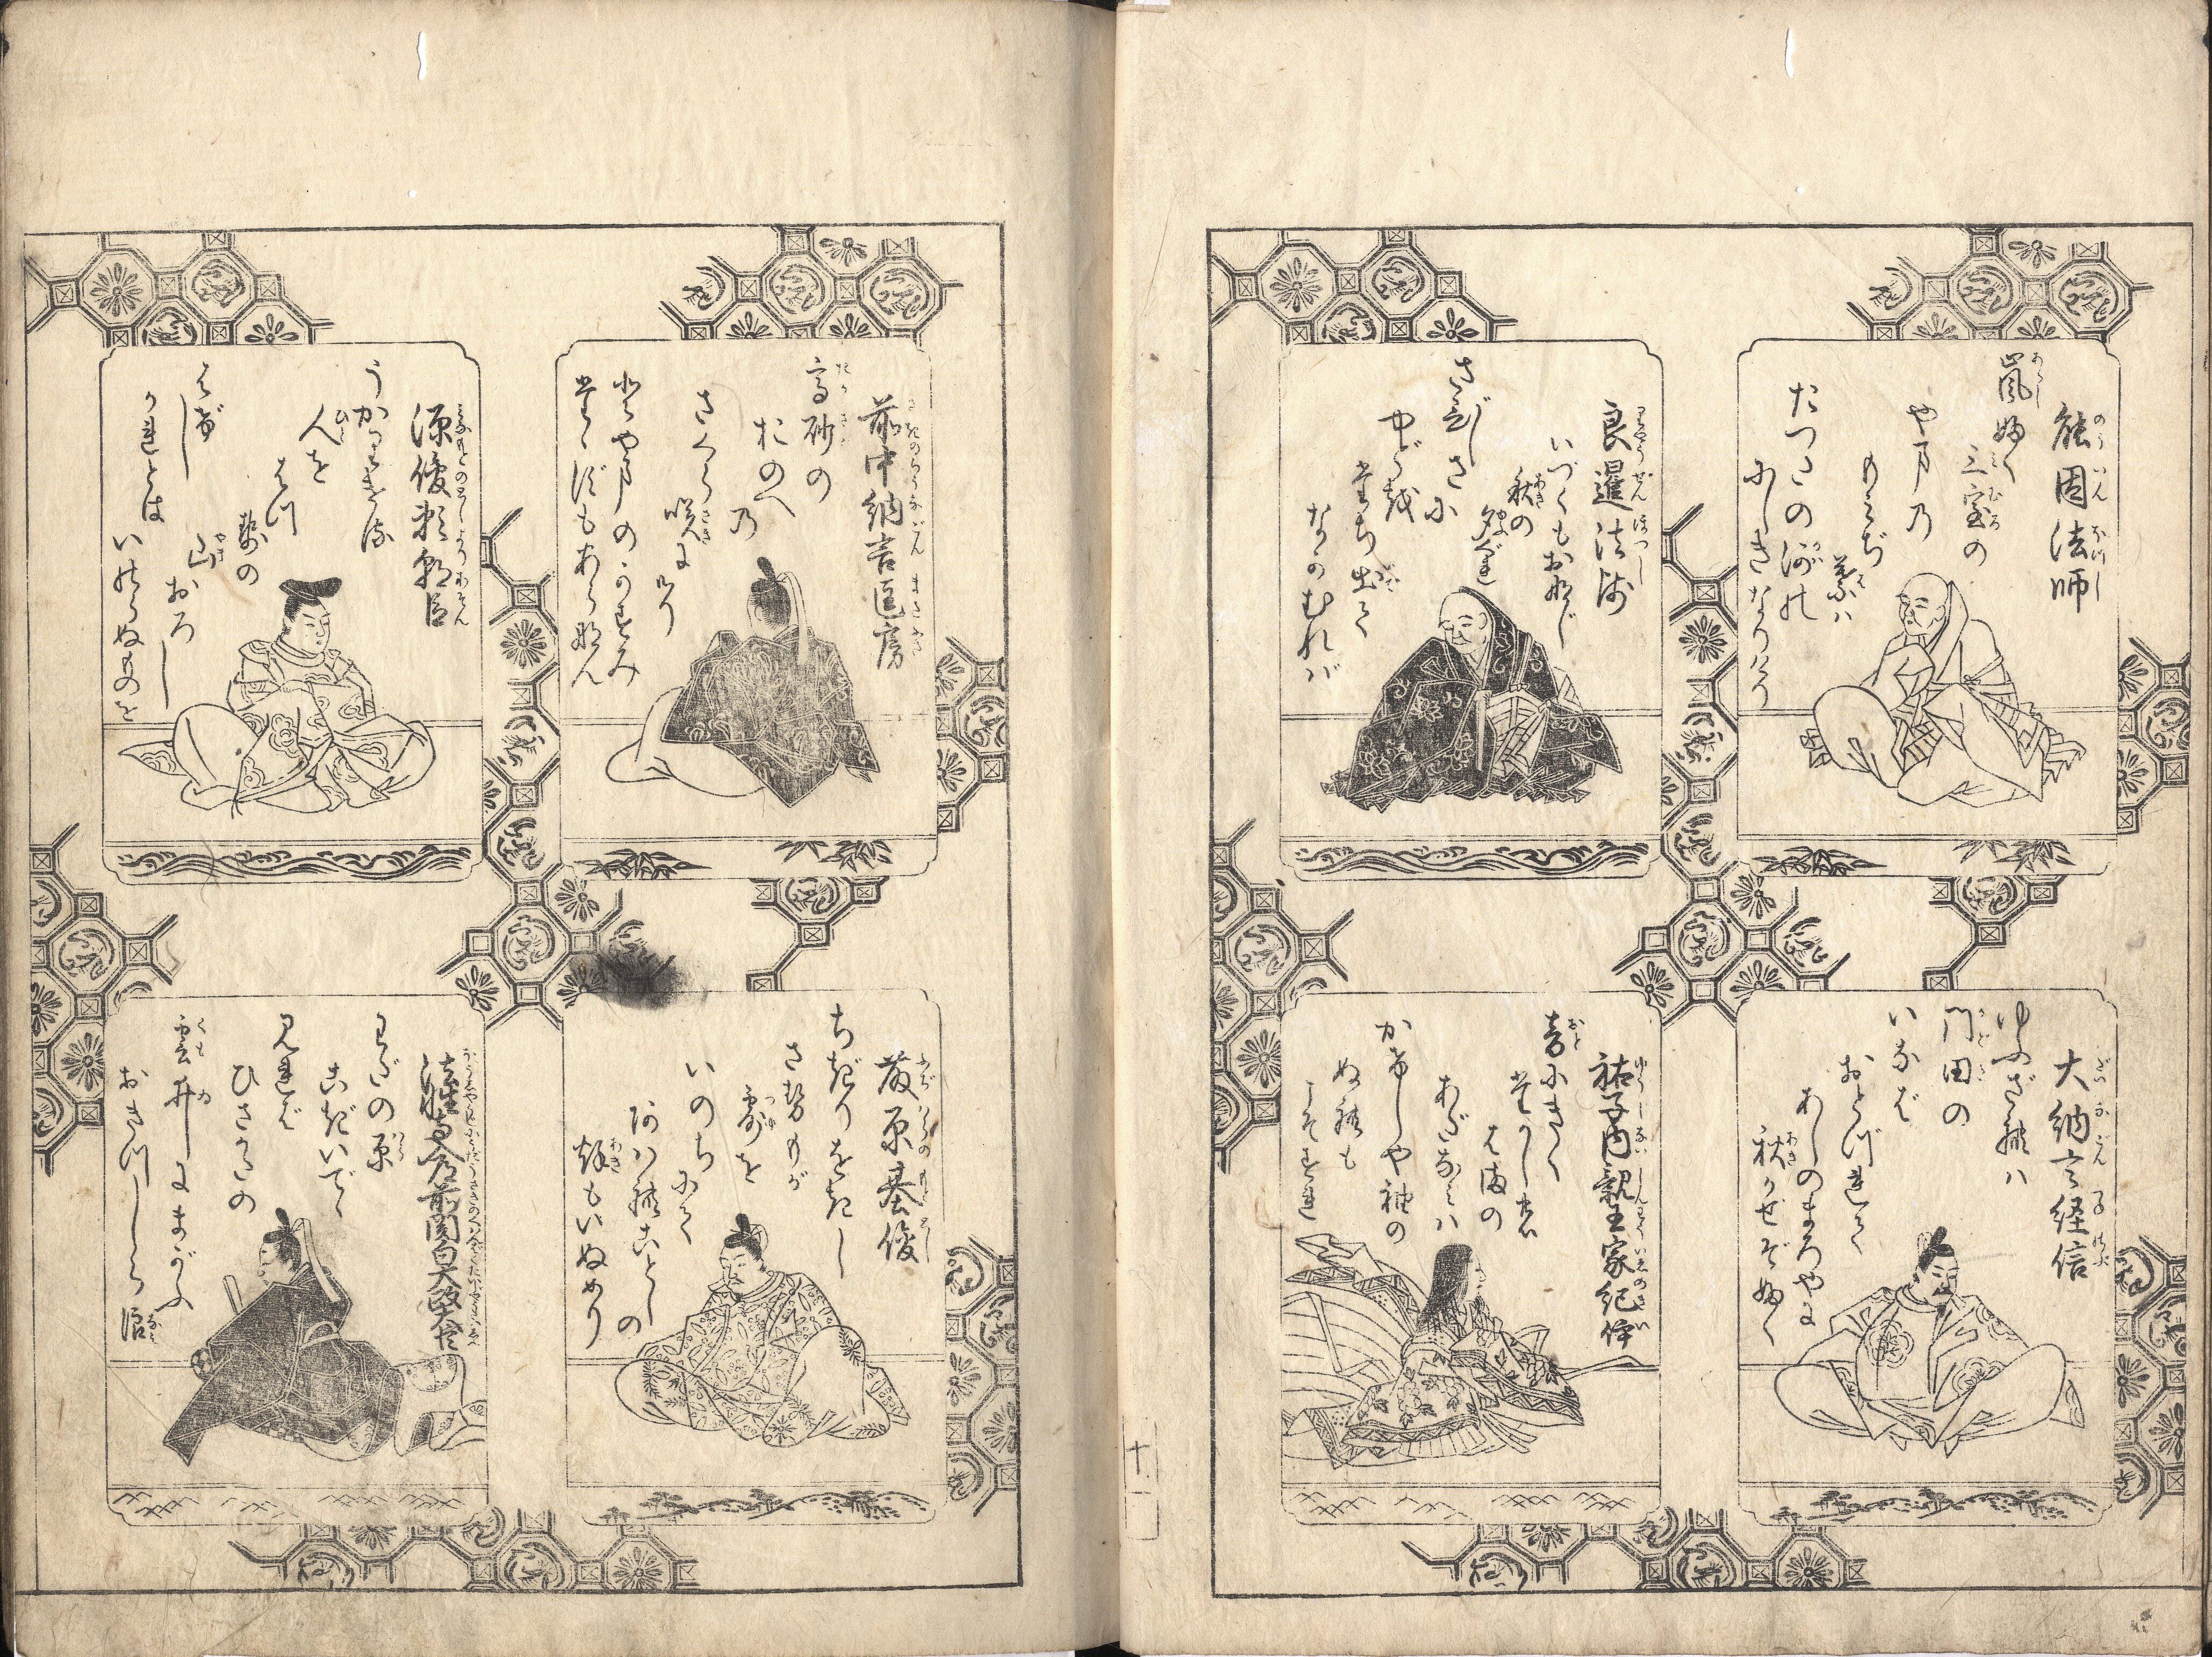 能因法師
嵐吹
三室の
やまの
もみぢ
葉ハ
たつたの河の
にしきなりけり
良暹法師
さびしさに
やどを
たち出て
ながむれバ
いづくもおなじ
秋の
夕ぐれ
大納言経信
ゆふざれハ
門田の
いなば
おとづれて
あしのまろやに
秋かぜぞふく
祐子内親王家紀伊
音にきく
たかしの
はまの
あだなみハ
かけじや袖の
ぬれも
こそすれ
前中納言匡房
高砂の
おのへ
の
さくら
咲にけり
とやまのかすみ
たゝずもあらなん
源俊頼朝臣
うかりける
人を
はつ
瀬の
山
おろし
はげし
かれとは
いのらぬものを
藤原基俊
ちぎりをきし
させもが
露を
いのちにて
あハれことしの
秋もいぬめり
法性寺入道前関白太政大臣
わだの原
こぎいでゝ
見れば
ひさかたの
雲井にまがふ
おきつしら浪
十一